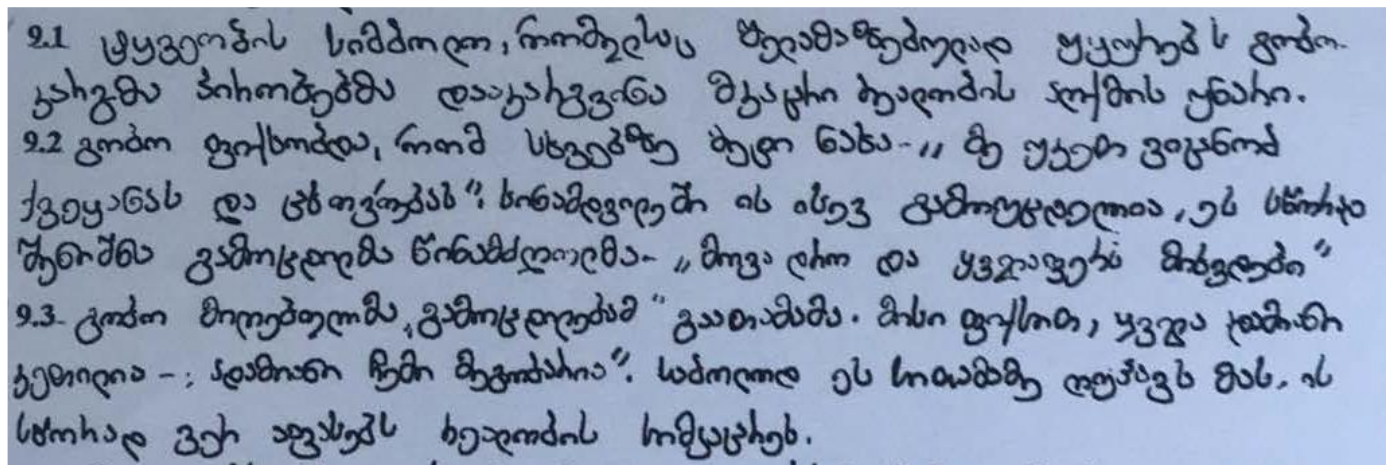 2.1 ტყვეობის სიმბოლო, რომელსაც შელამაზებულად უყურებს გოხო.
კარგმა პირობებმა დააკარგვინა მკაცრი რეალობის აღქმის უნარი.
2.2 გოხო ფიქრობდა, რომ სხვებზე მეტი ნახა - „მე უკეთ ვიცნობ
ქვეყანას და ცხოვრებას“. სინამდვილეში ის ისევ გამოუცდელია, ეს სწორად
შენიშნა გამოცდილმა წინამძღოლმა - „მოვა დრო და ყველაფერს მიხვდები“
2.3 გოხო მიღებულმა „გამოცდილებამ“ გაათამამა. მისი ფიქრით, ყველა ადამიანი
კეთილია -: ადამიანი ჩემი მეგობარია“. საბოლოოდ ეს სითამამე ღუპავს მას. ის
სწორად ვერ აფასებს რეალობის სიმკაცრეს.